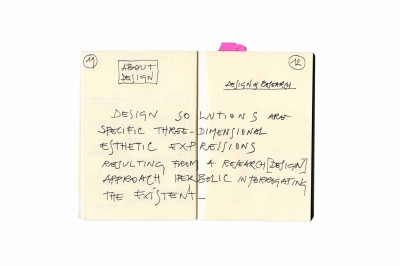 11
ABOUT
DESIGN
12
DESIGN & RESEARCH
DESIGN SOLUTIONS ARE
SPECIFIC THREE-DIMENSIONAL
ESTHETIC EXPRESSIONS
RESULTING FROM A RESEARCH [DESIGN]
APPROACH INTERROGATING
THE EXISTENT_